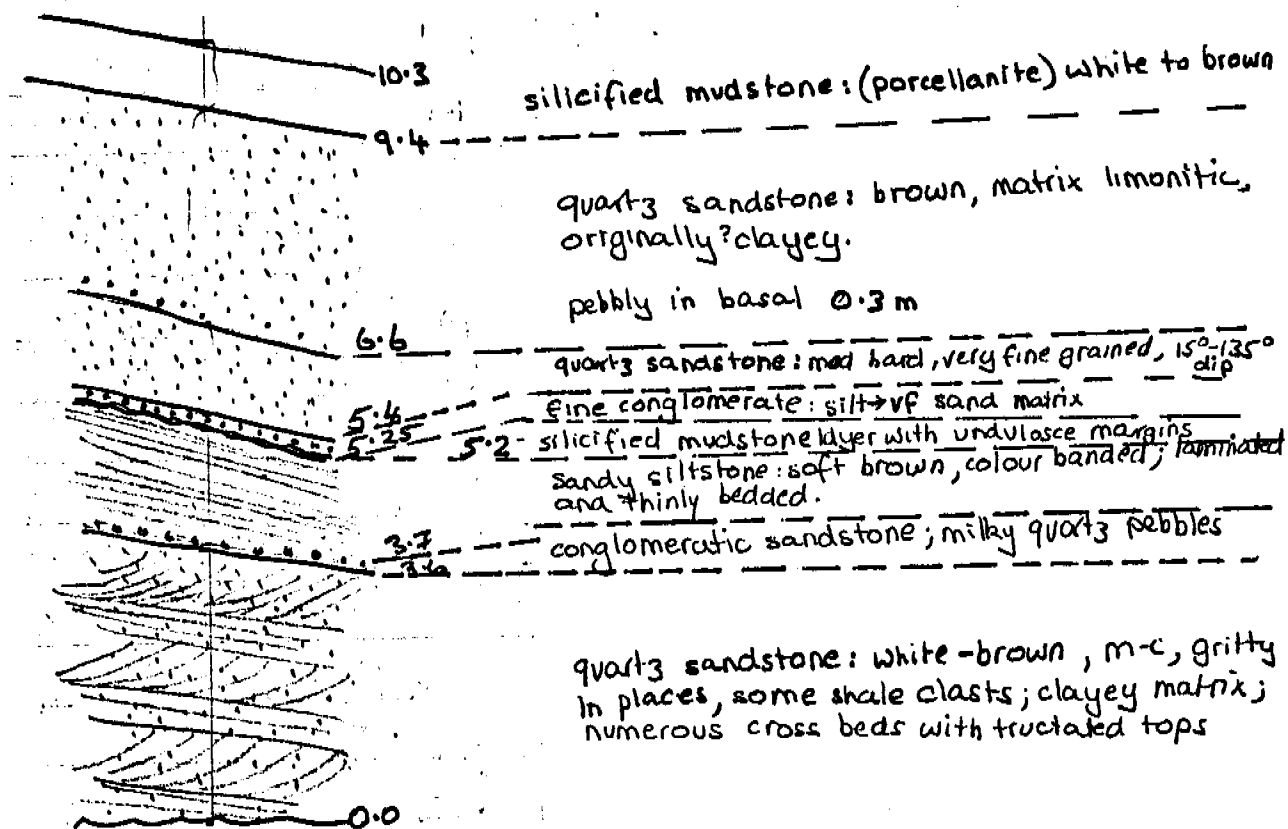 10.3
silicified mudstone: (porcellanite) white to brown
9.4
quartz sandstone: brown, matrix limonitic,
originally ?clayey.
pebbly in basal 0.3 m
6.6
quartz sandstone: med hard, very fine grained, 15°-135°
dip
5.4
fine conglomerate: silt→vf sand matrix
5.25
5.2 - silicified mudstone layer with undulasce margins
sandy siltstone: soft brown, colour banded; laminated
and thinly bedded.
3.7
conglomeratic sandstone; milky quartz pebbles
quartz sandstone: white-brown, m-c, gritty
in places, some shale clasts; clayey matrix;
numerous cross beds with tructated tops
0.0